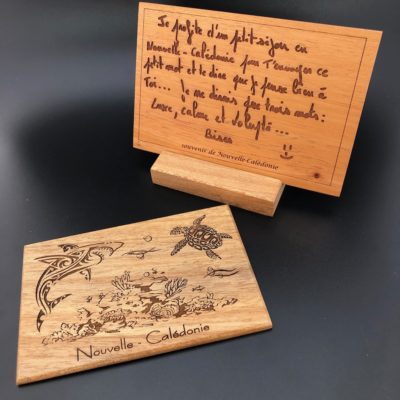 Je profite d'un petit séjour en
Nouvelle-Calédonie pour t'envoyer ce
petit mot et te dire que je pense bien à
Toi... Je me dirais que trois mots:
Luxe, calme et volupté...
Bises
souvenir de Nouvelle-Calédonie
Nouvelle - Calédonie